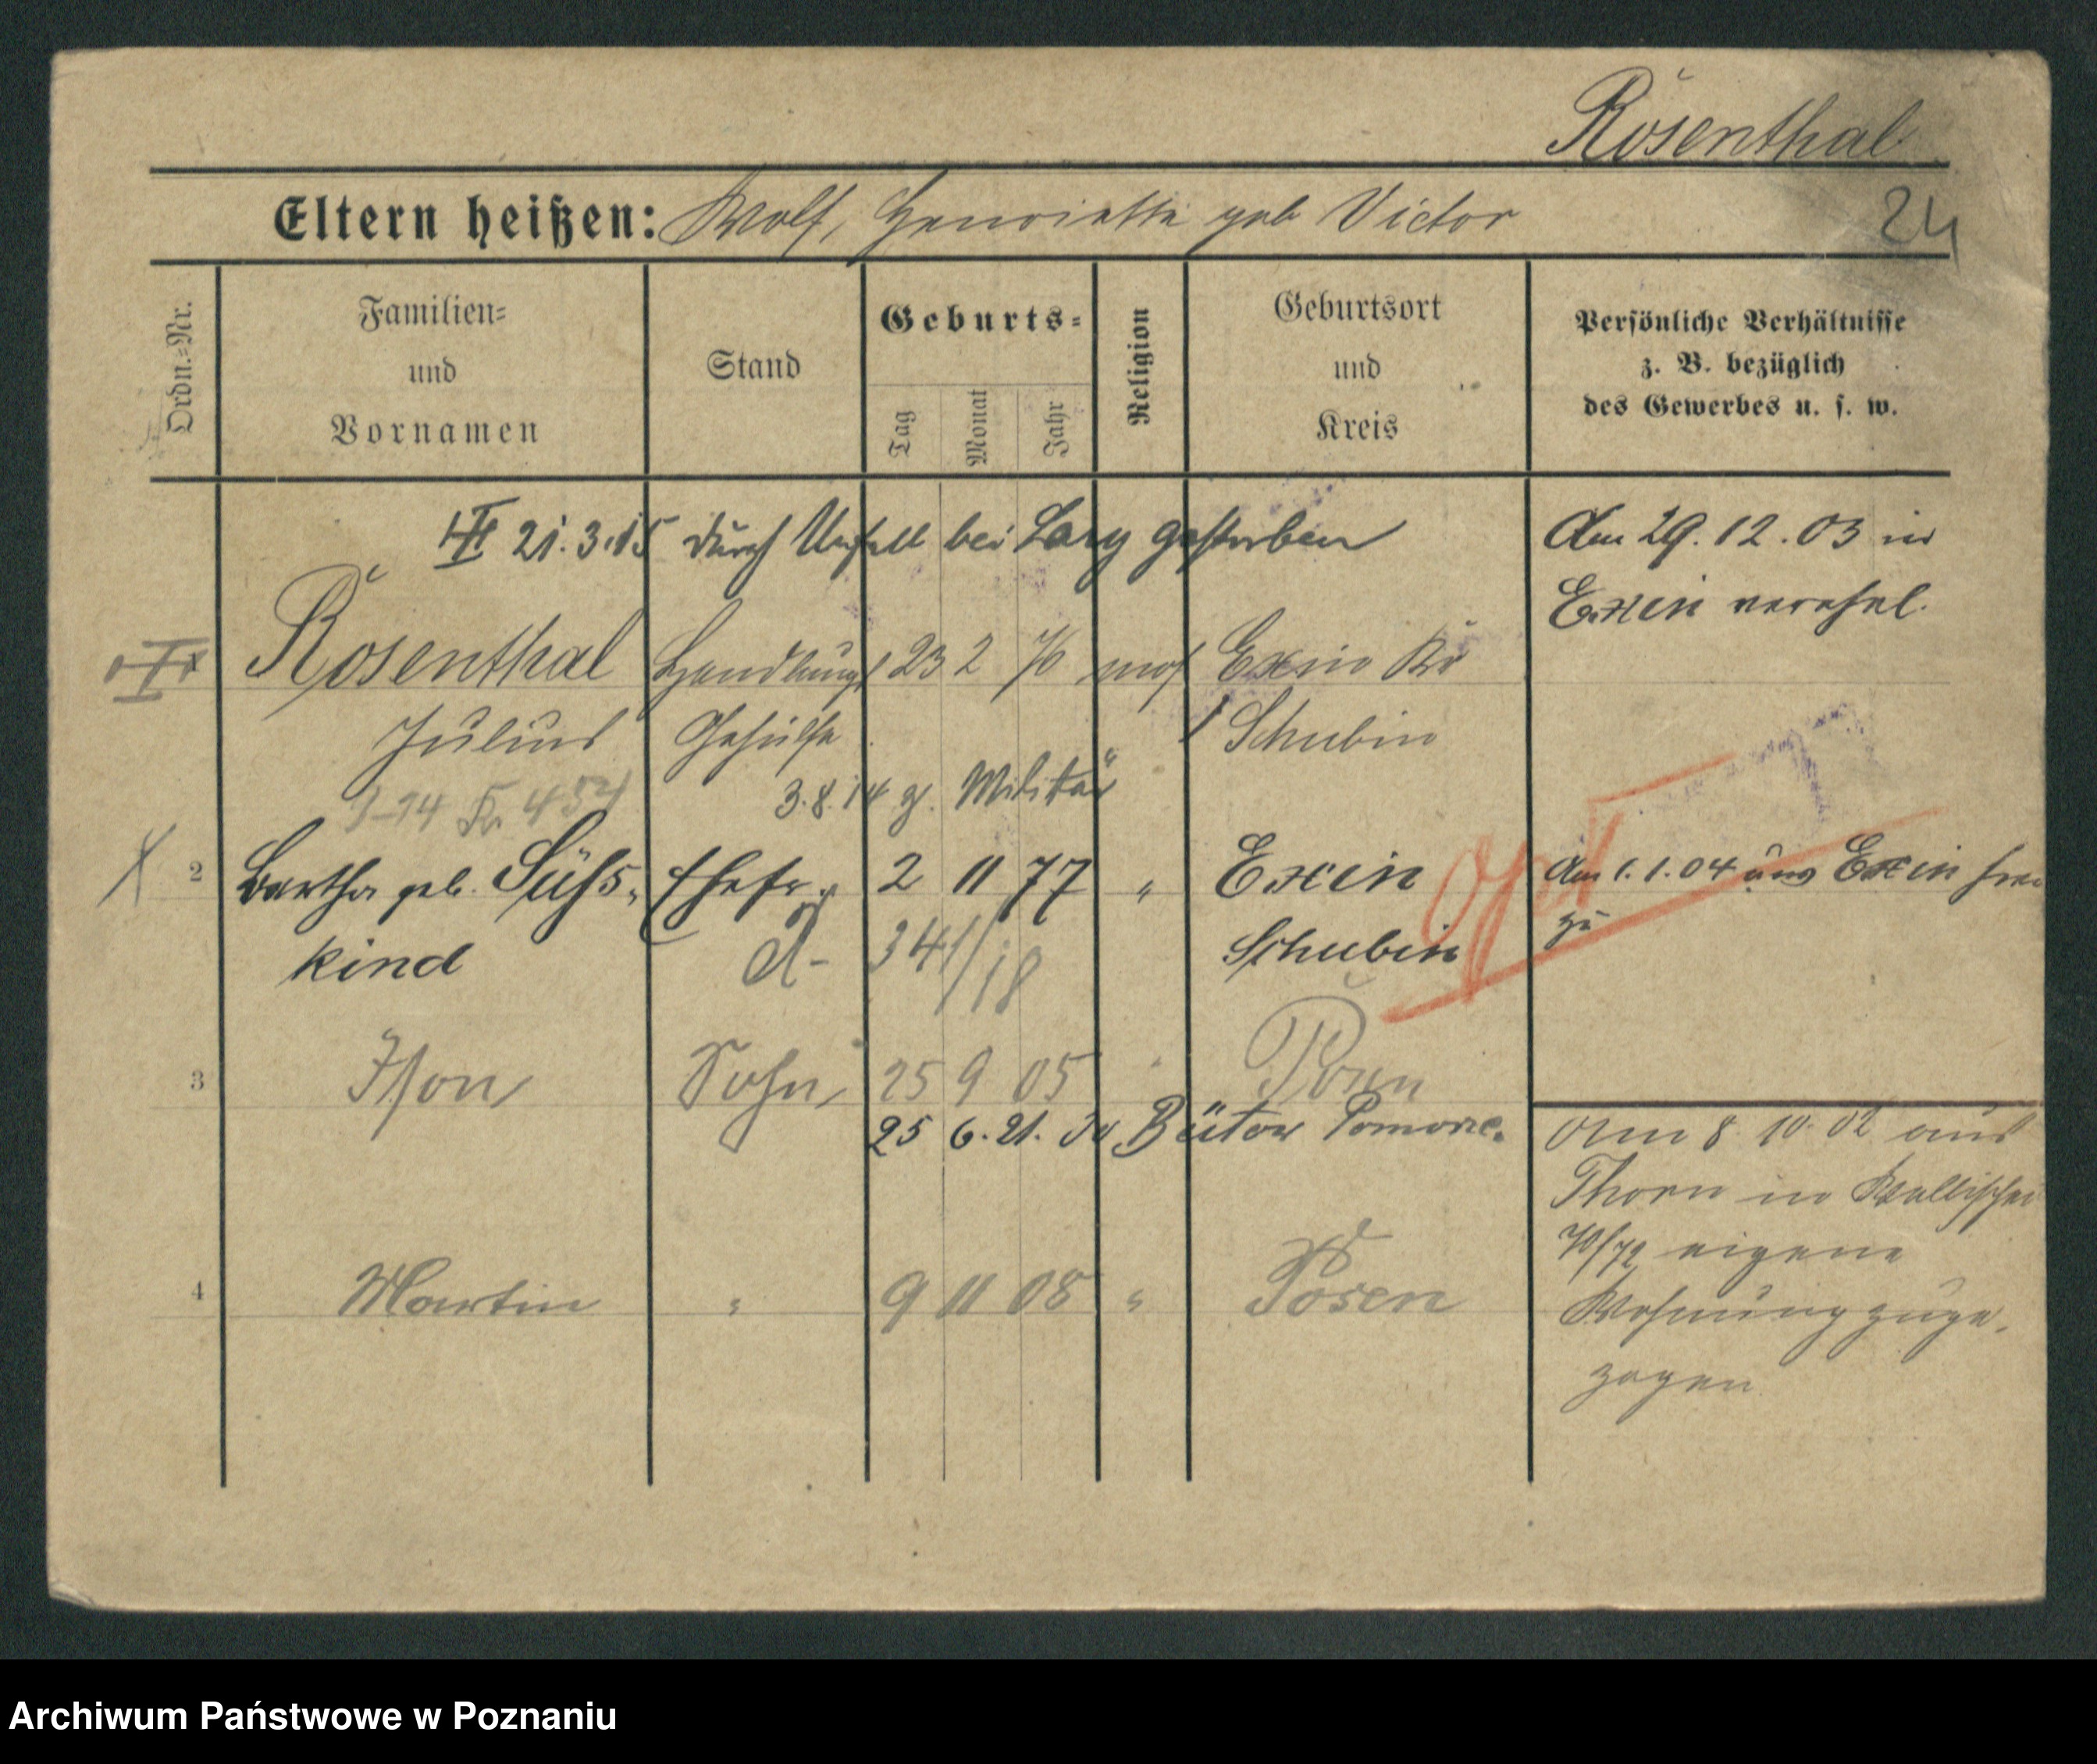 Rosenthal
Eltern heißen: Wolf, Henriette geb Victor
24
Ordn.=Nr.
Familien=
und
Vornamen
Stand
Geburts=
Tag
Monat
Jahr
Religion
Geburtsort
und
Kreis
Persönliche Verhältnisse
z. B. bezüglich
des Gewerbes u. s. w.
21.3.15 durch Unfall bei gestorben
Am 29.12.03 in
Exin verehel.
Rosenthal Handlungs 23 2 76 mos Exin Kr
Julius Gehülfe Schubin
3.8.14 z. Militär
2 Bertha geb. Süss- Ehefr. 2 11 77 " Exin
Am 1.1.04 aus Exin
zu
kind Schubin
3 Ison Sohn 25 9 05 " Posen
25 6. 21. Bütow Pomm.
Am 8 10. 02 aus
Thorn in Wallischei
70/72 eigene
Wohnung zuge-
zogen
4 Martin " 9 11 08 " Posen
Archiwum Państwowe w Poznaniu